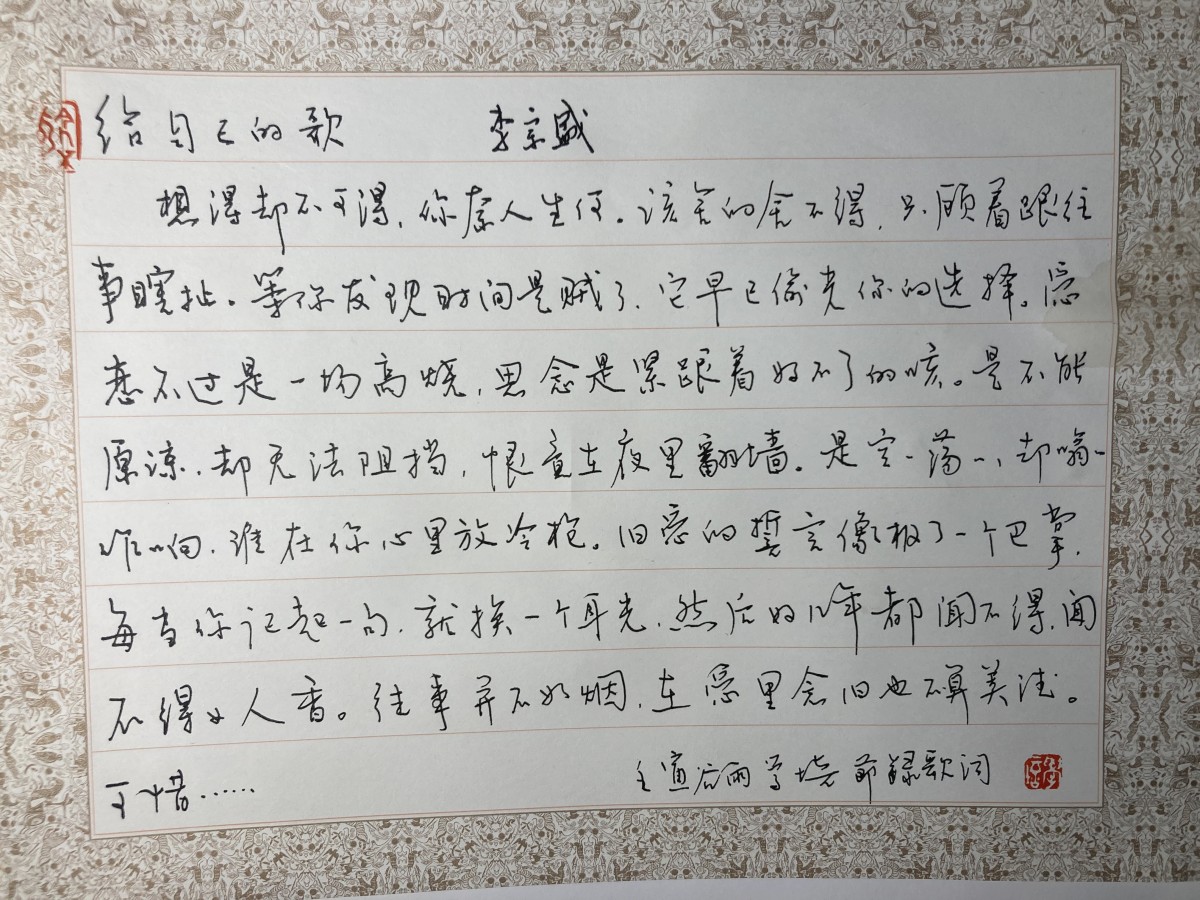 给自己的歌 李宗盛
想得却不可得，你奈人生何。该舍的舍不得，只顾着跟往
事瞎扯。等你发现时间是贼了，它早已偷光你的选择。爱
恋不过是一场高烧，思念是紧跟着好不了的咳。是不能
原谅，却无法阻挡，恨意在夜里翻墙。是空空荡荡，却嗡嗡
作响，谁在你心里放冷枪。旧爱的誓言像极了一个巴掌，
每当你记起一句，就挨一个耳光，然后好几年都闻不得，闻
不得女人香。往事并不如烟，在爱里念旧也不算美德。
可惜……
节录歌词